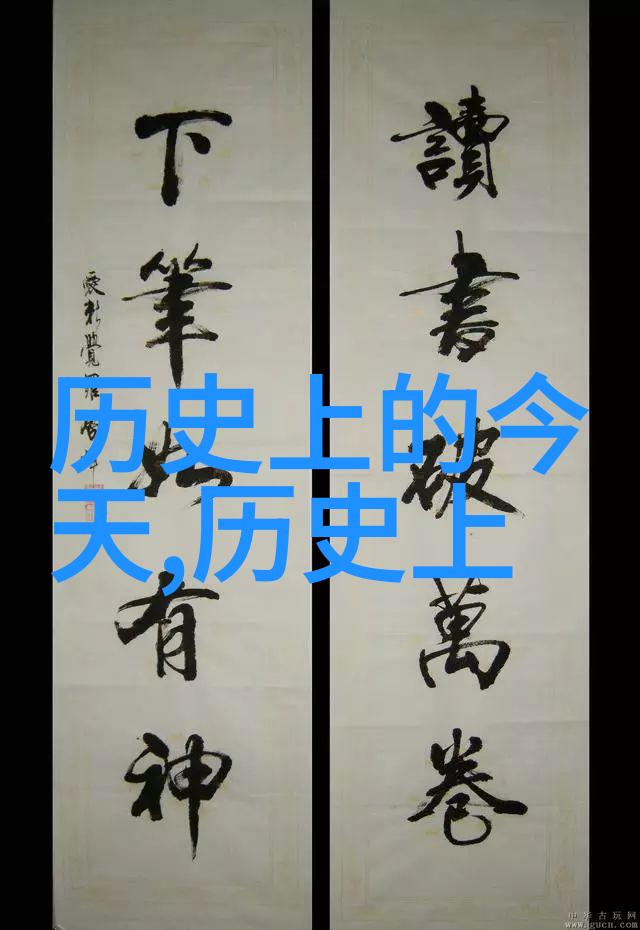 讀書破萬卷
下筆如有神
愛新覺羅
历史上的今
天,历史上
中华古玩网
www.gucn.com